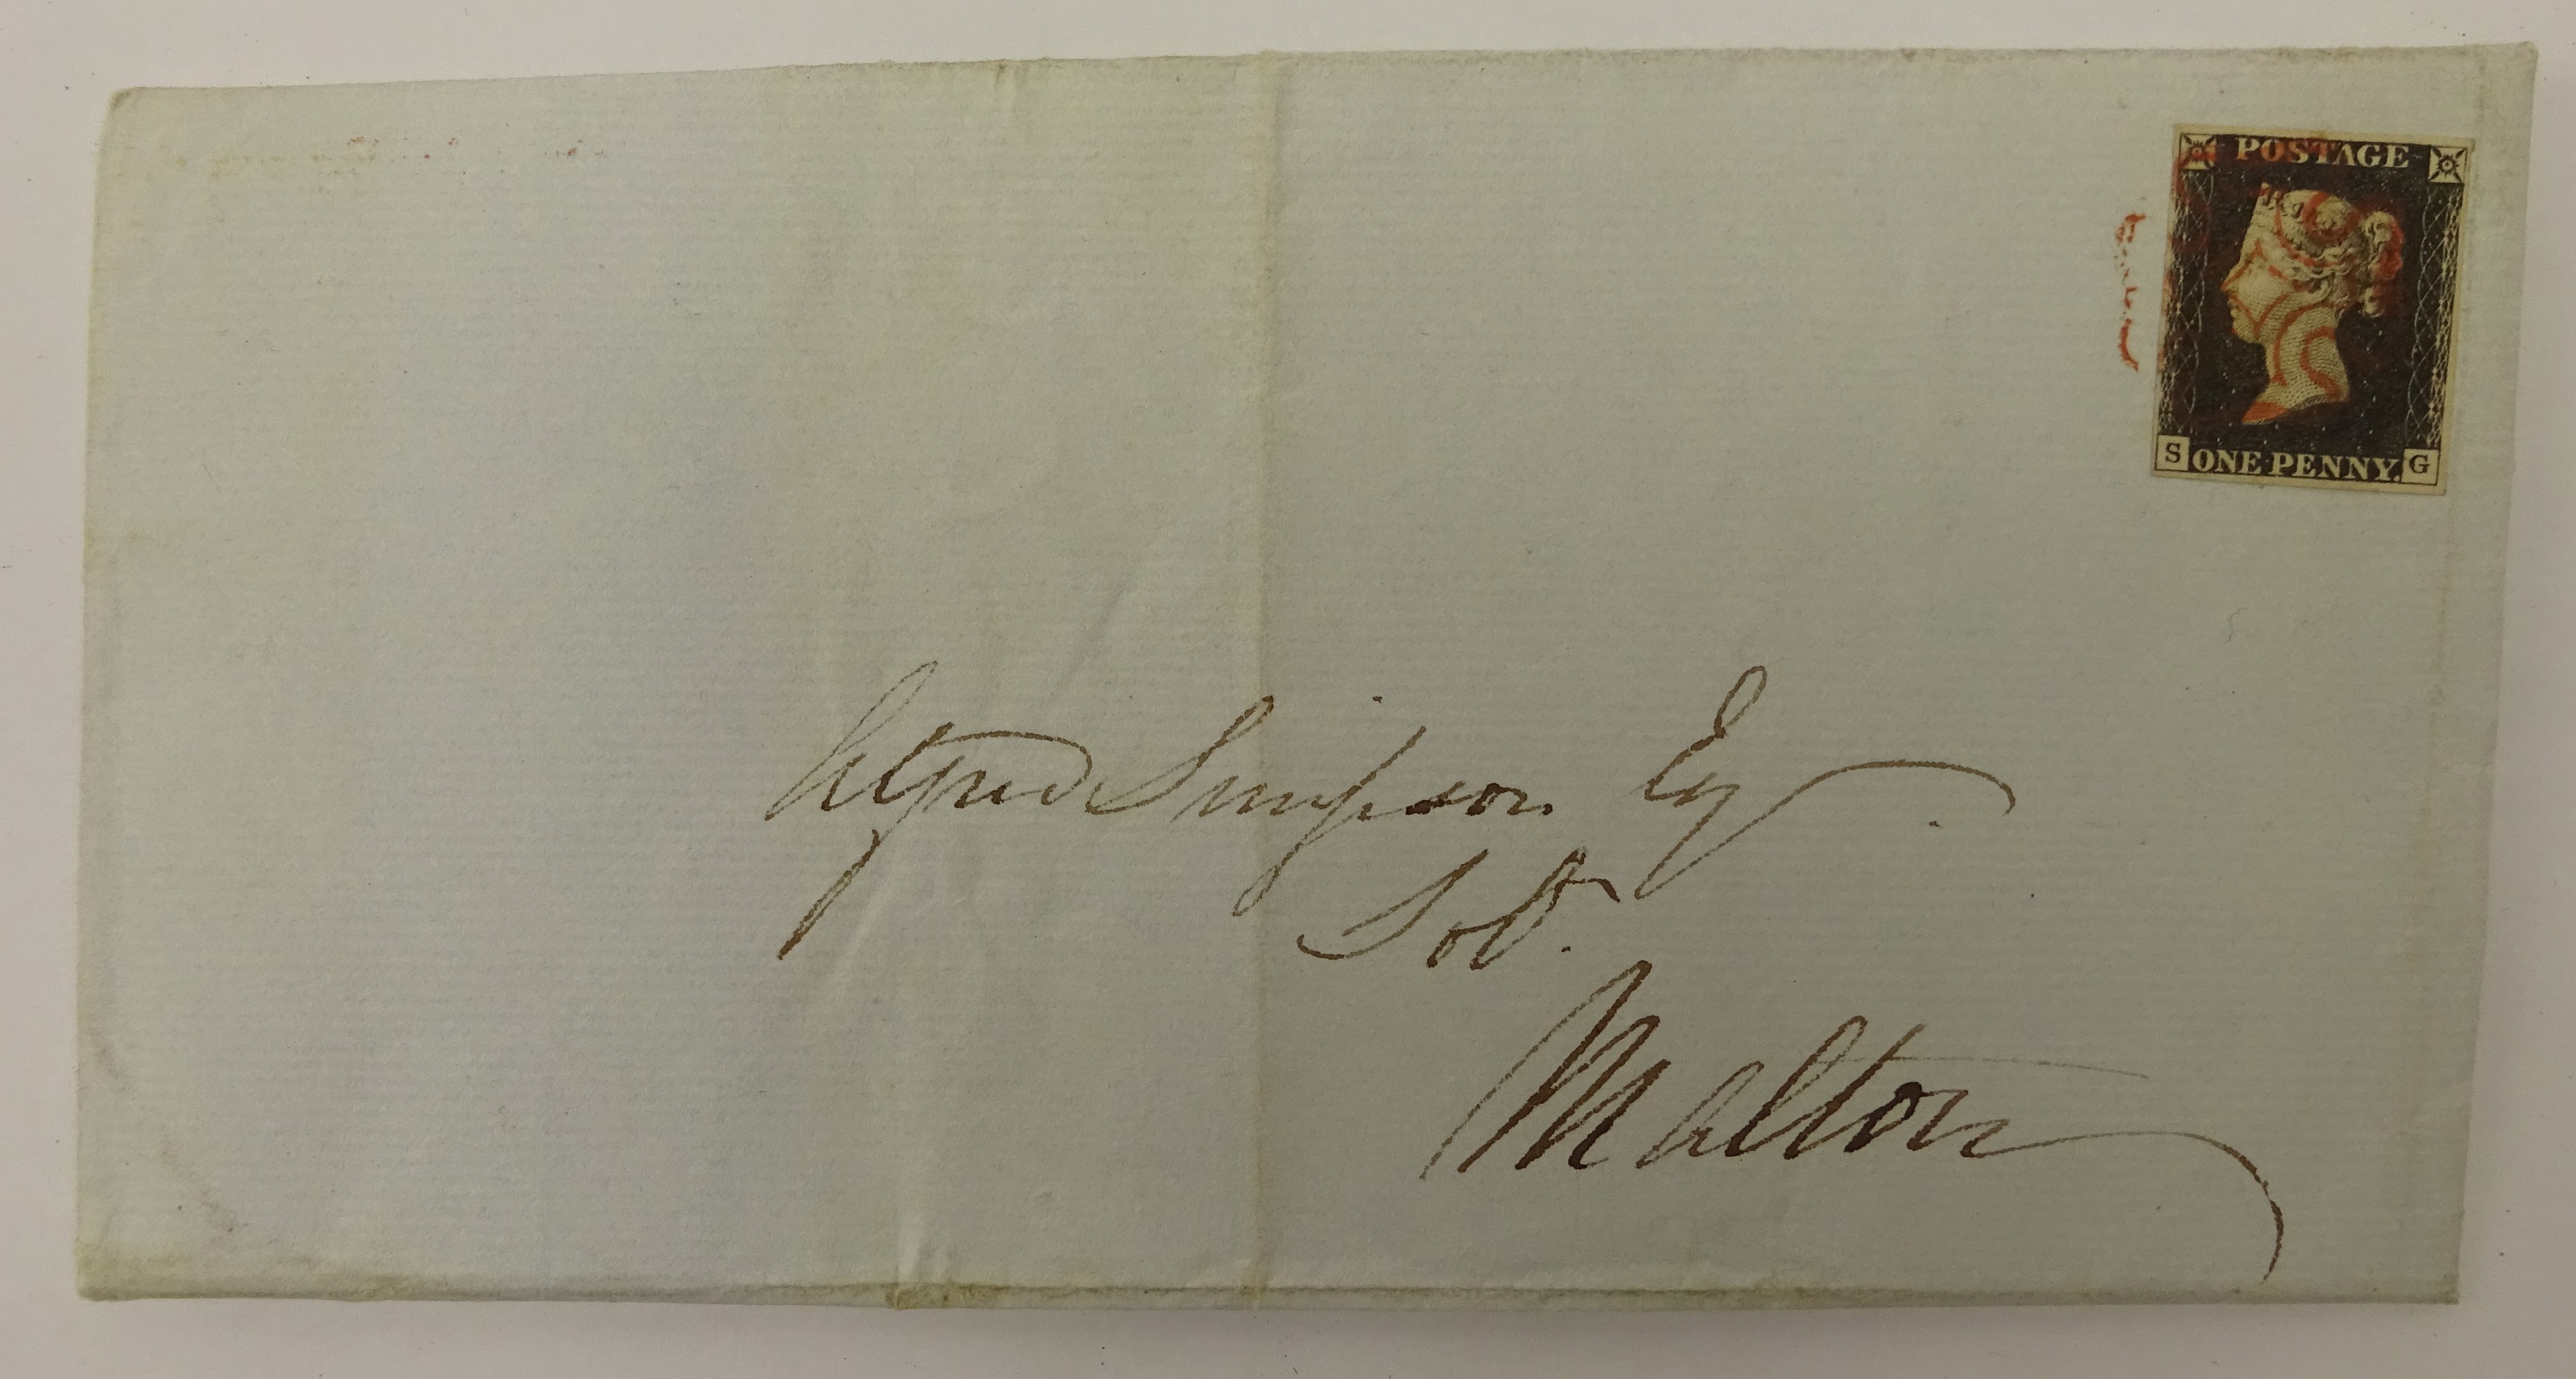 POSTAGE
S ONE PENNY. G
Alfred Simpson Esq
Solr.
Malton